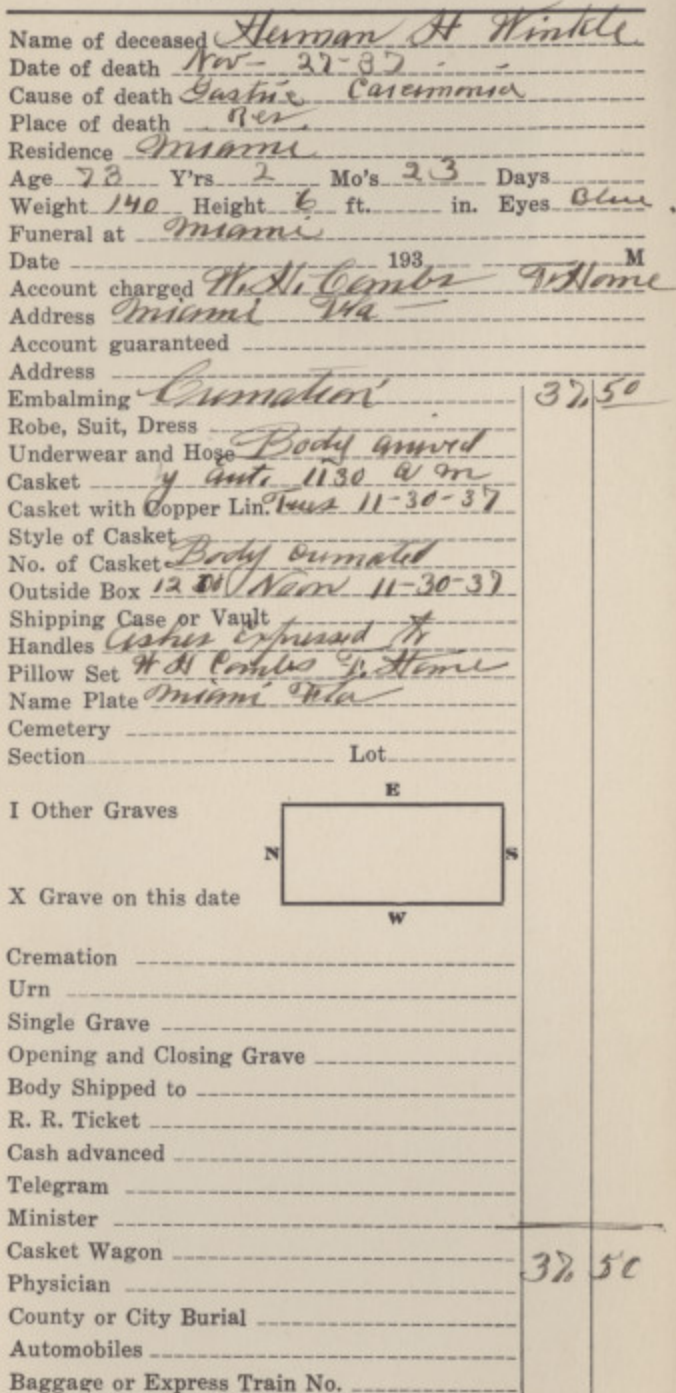 Name of deceased Herman H Winkle
Date of death Nov - 27-37 - -
Cause of death Gastric Carcimonia
Place of death Res.
Residence Miami
Age 73 Y'rs 2 Mo's 23 Days
Weight 140 Height 6 ft. in. Eyes Blue.
Funeral at Miami
Date 193 M
Account charged W. H. Combs F. Home
Address Miami Fla
Account guaranteed
Address
Embalming Cremation 37.50
Robe, Suit, Dress
Underwear and Hose Body arrived
Casket y aut. 1130 a m
Casket with Copper Lin. Tues 11-30-37
Style of Casket
No. of Casket Body cremated
Outside Box 12 Noon 11-30-37
Shipping Case or Vault
Handles Ashes Expressed to
Pillow Set W H Combs F. Home
Name Plate Miami Fla
Cemetery
Section Lot
E
I Other Graves
N S
X Grave on this date
W
Cremation
Urn
Single Grave
Opening and Closing Grave
Body Shipped to
R. R. Ticket
Cash advanced
Telegram
Minister
Casket Wagon 37.50
Physician
County or City Burial
Automobiles
Baggage or Express Train No.